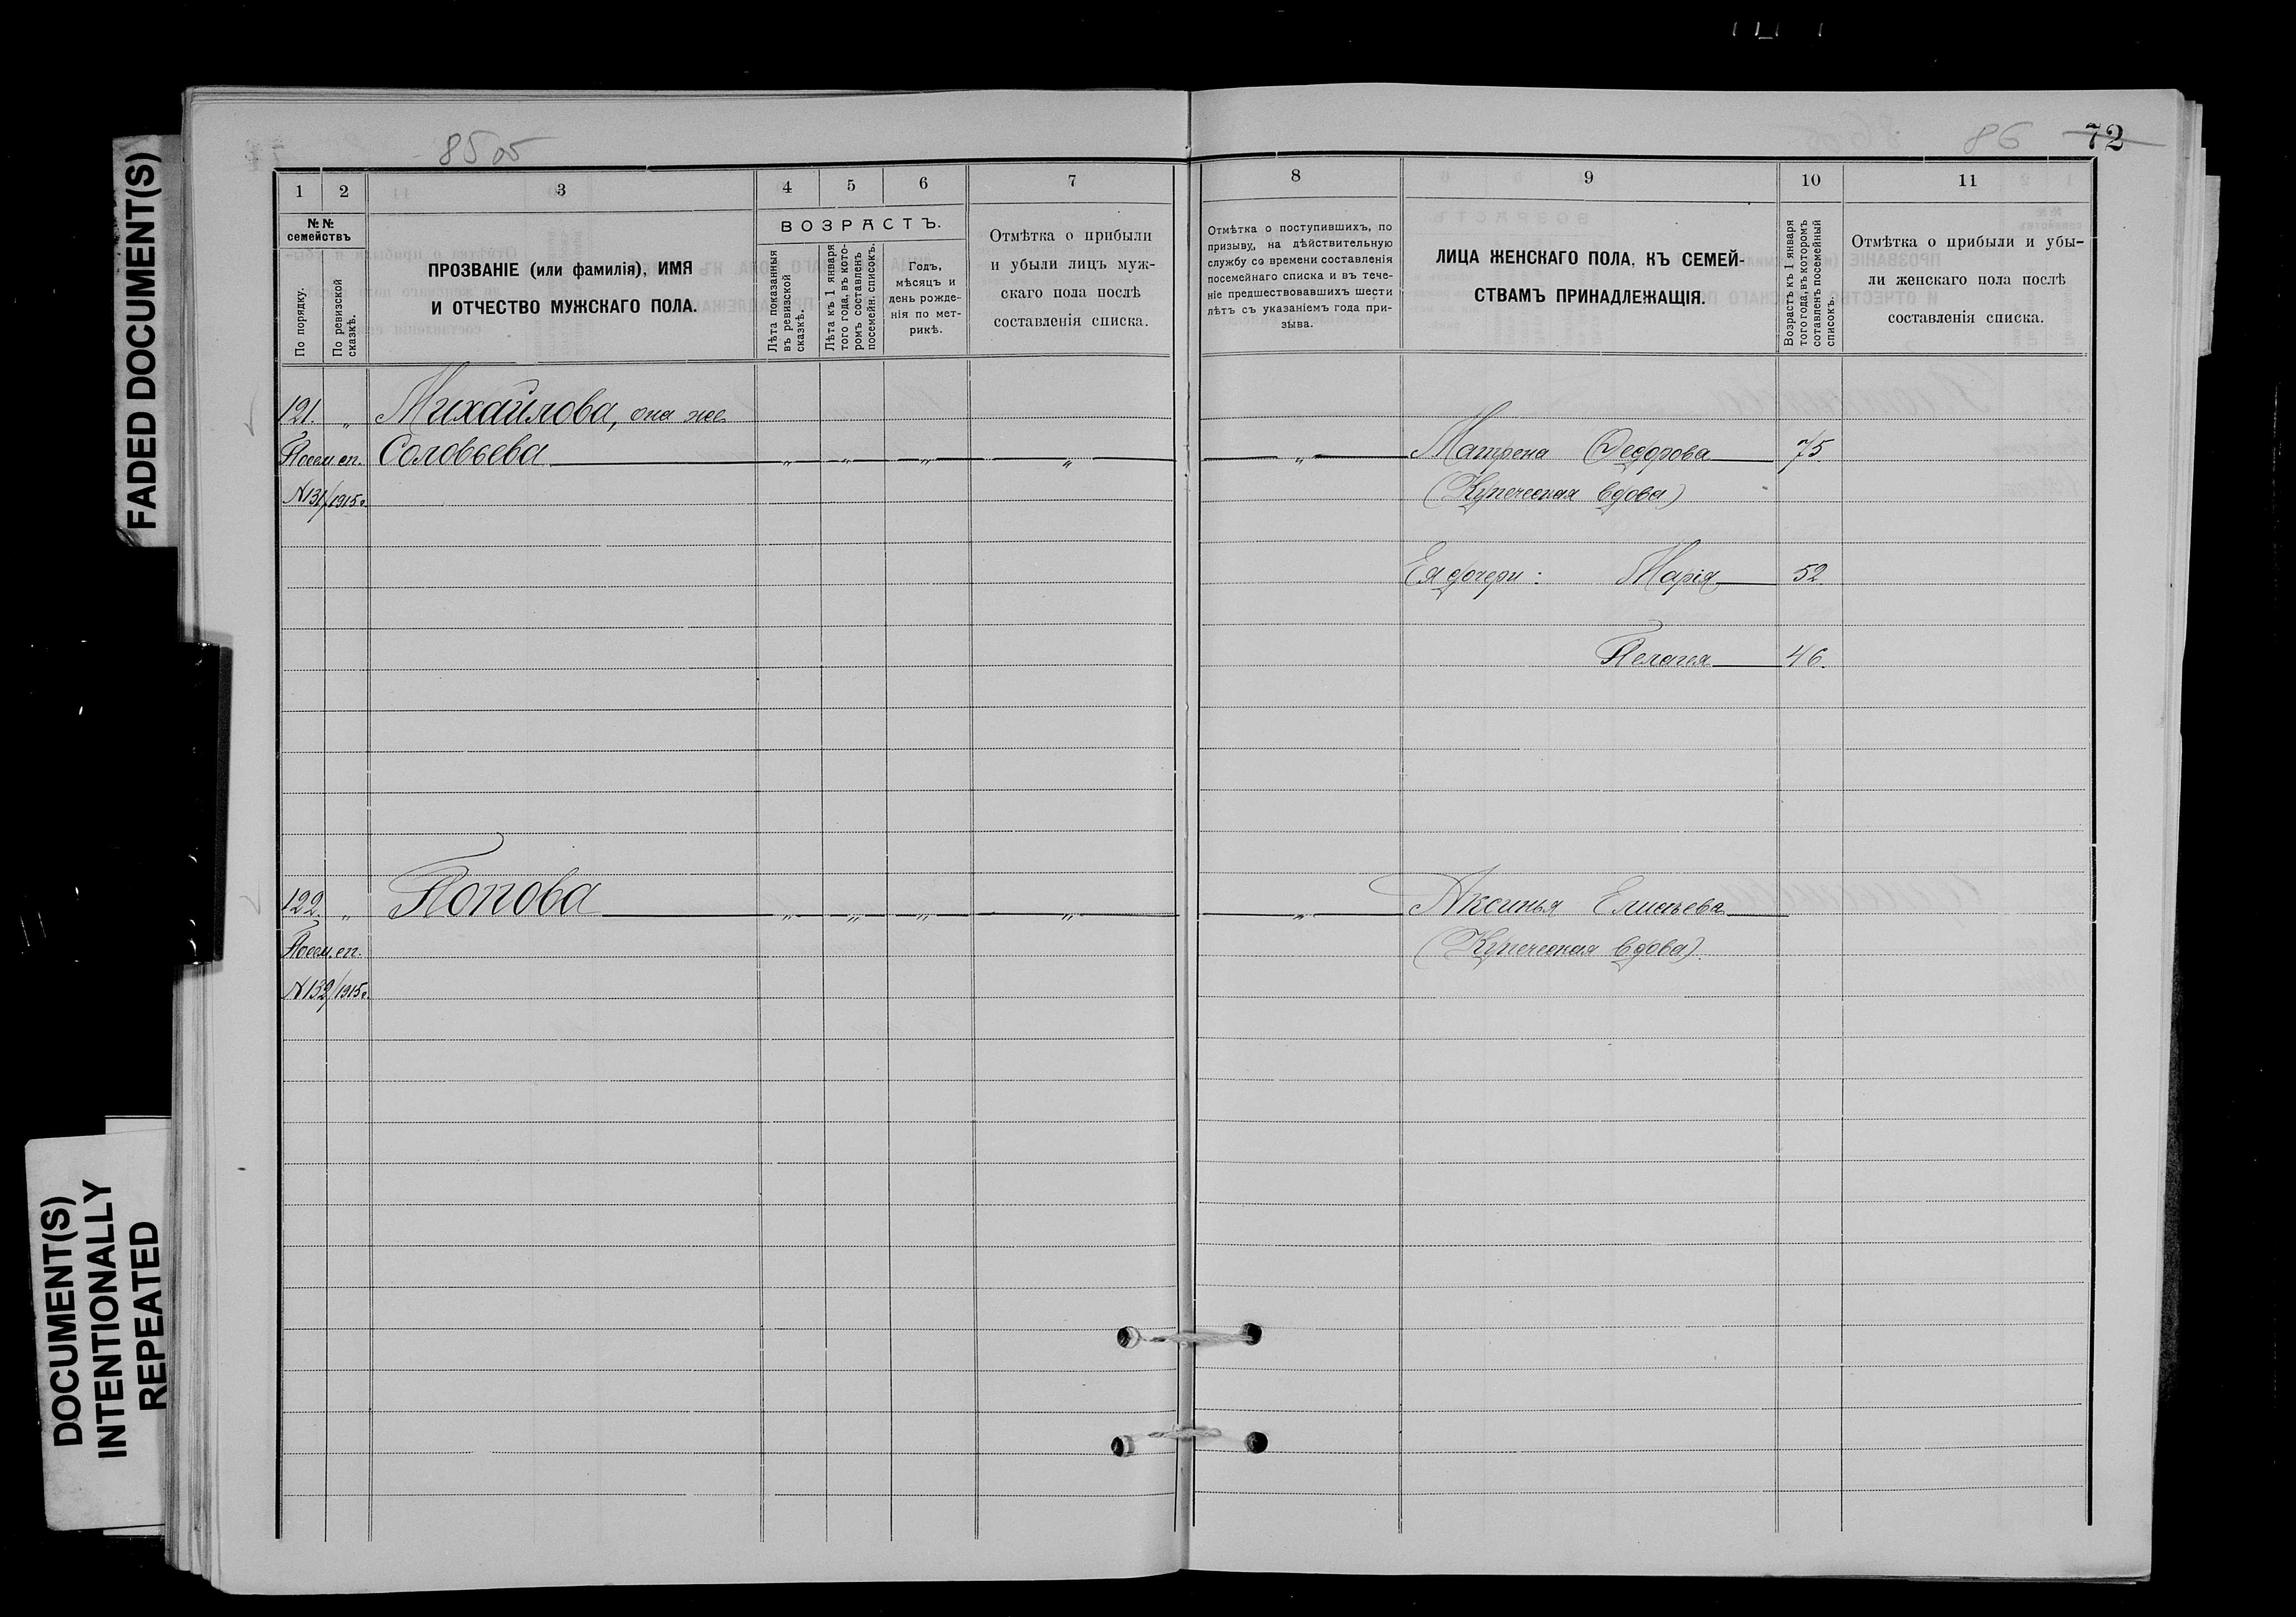 FADED DOCUMENT(S)
DOCUMENT(S)
INTENTIONALLY
REPEATED
85 об
1 2 3 4 5 6 7
№ №
семействъ
По порядку.
По ревизской сказкѣ.
ПРОЗВАНІЕ (или фамилія), ИМЯ
И ОТЧЕСТВО МУЖСКАГО ПОЛА.
ВОЗРАСТЪ.
Лѣта показанныя
въ ревизской
сказкѣ.
Лѣта къ 1 января
того года, въ кото-
ромъ составленъ
посемейн. списокъ.
Годъ,
мѣсяцъ и
день рожде-
нія по мет-
рикѣ.
Отмѣтка о прибыли
и убыли лицъ муж-
скаго пола послѣ
составленія списка.
121. „ Михайлова, она же
Посем. сп. Соловьева „ „ „ „
№131/1915г.
122. „ Попова „ „ „ „
Посем. сп.
№132/1915г.
86 72
8 9 10 11
Отмѣтка о поступившихъ, по
призыву, на дѣйствительную
службу со времени составленія
посемейнаго списка и въ тече-
ніе предшествовавшихъ шести
лѣтъ съ указаніемъ года при-
зыва.
ЛИЦА ЖЕНСКАГО ПОЛА, КЪ СЕМЕЙ-
СТВАМЪ ПРИНАДЛЕЖАЩІЯ.
Возрастъ къ 1 января
того года, въ которомъ
составленъ посемейный
списокъ.
Отмѣтка о прибыли и убы-
ли женскаго пола послѣ
составленія списка.
„ Матрена Федорова 75
(Купеческая вдова)
Ея дочери: Марія 52.
Пелагея 46.
„ Аксинья Елисѣева
(Купеческая вдова).